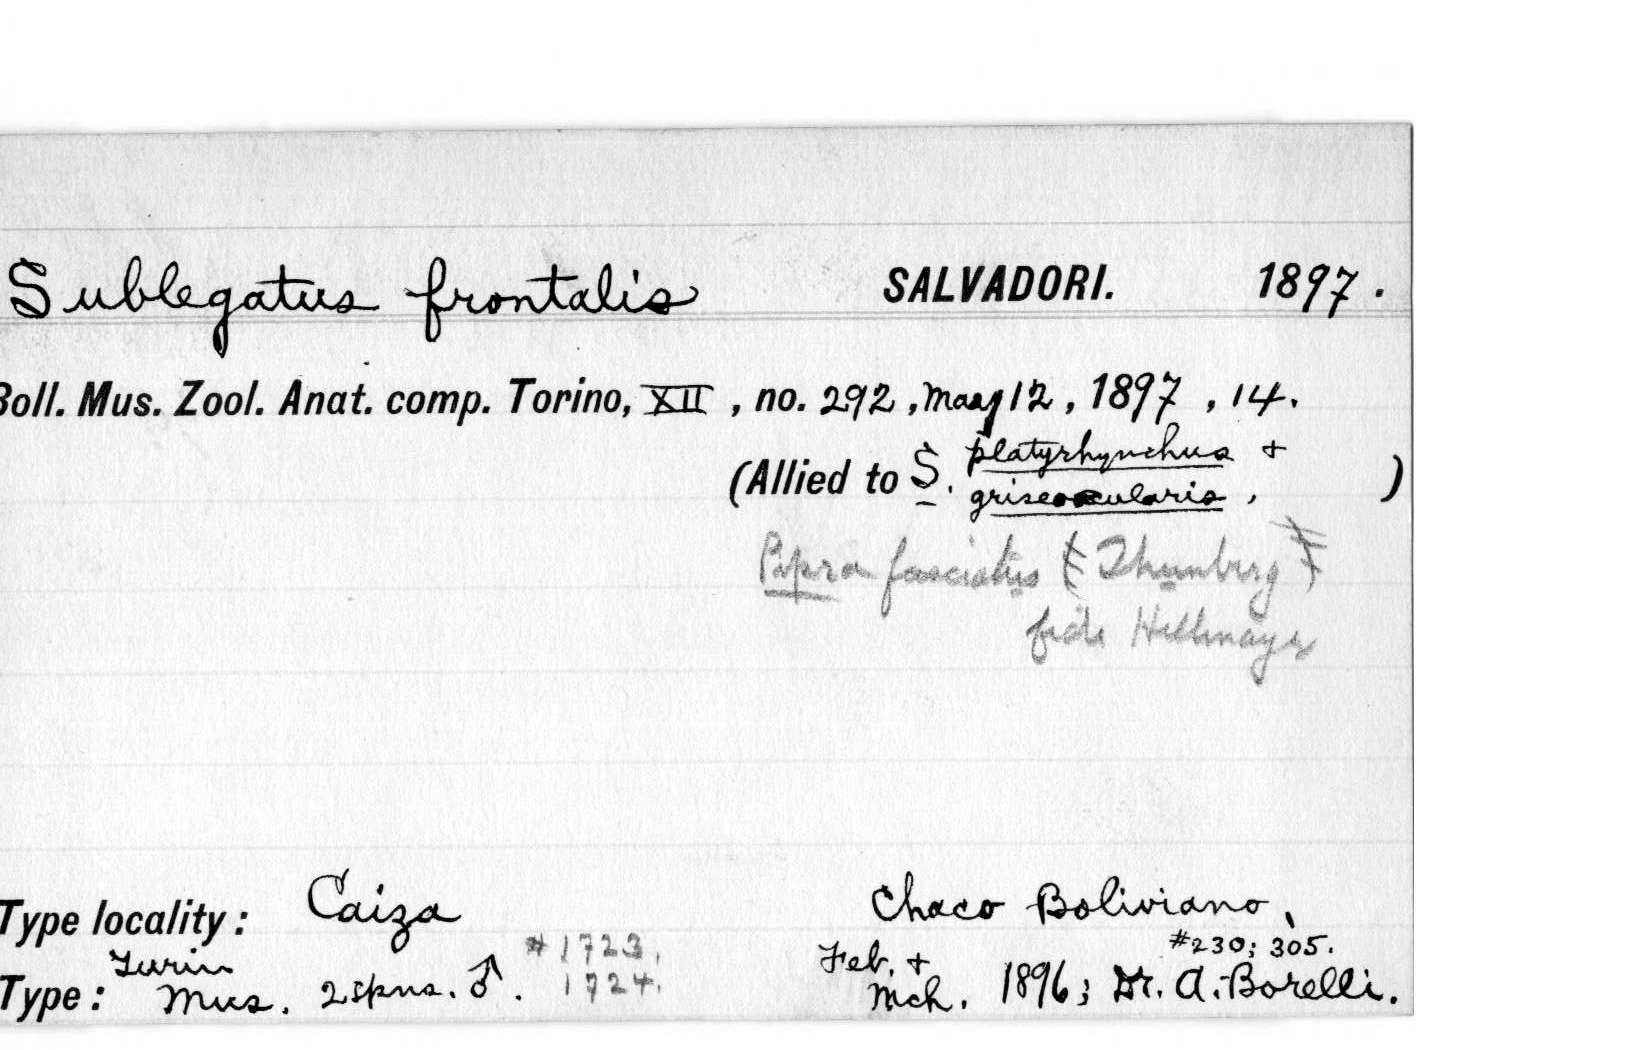 Sublegatus frontalis SALVADORI. 1897.
Boll. Mus. Zool. Anat. comp. Torino, XII, no. 292, May 12, 1897, 14.
(Allied to S. platyrhynchus &
griseocularis, )
Pipra fasciatus (Thunberg)
fide Hellmayr
Type locality: Caiza Chaco Boliviano,
Type: Turin Mus. 2 spns. ♂. #1723, 1724. Feb. & Mch. 1896; #230; 305. Dr. A. Borelli.